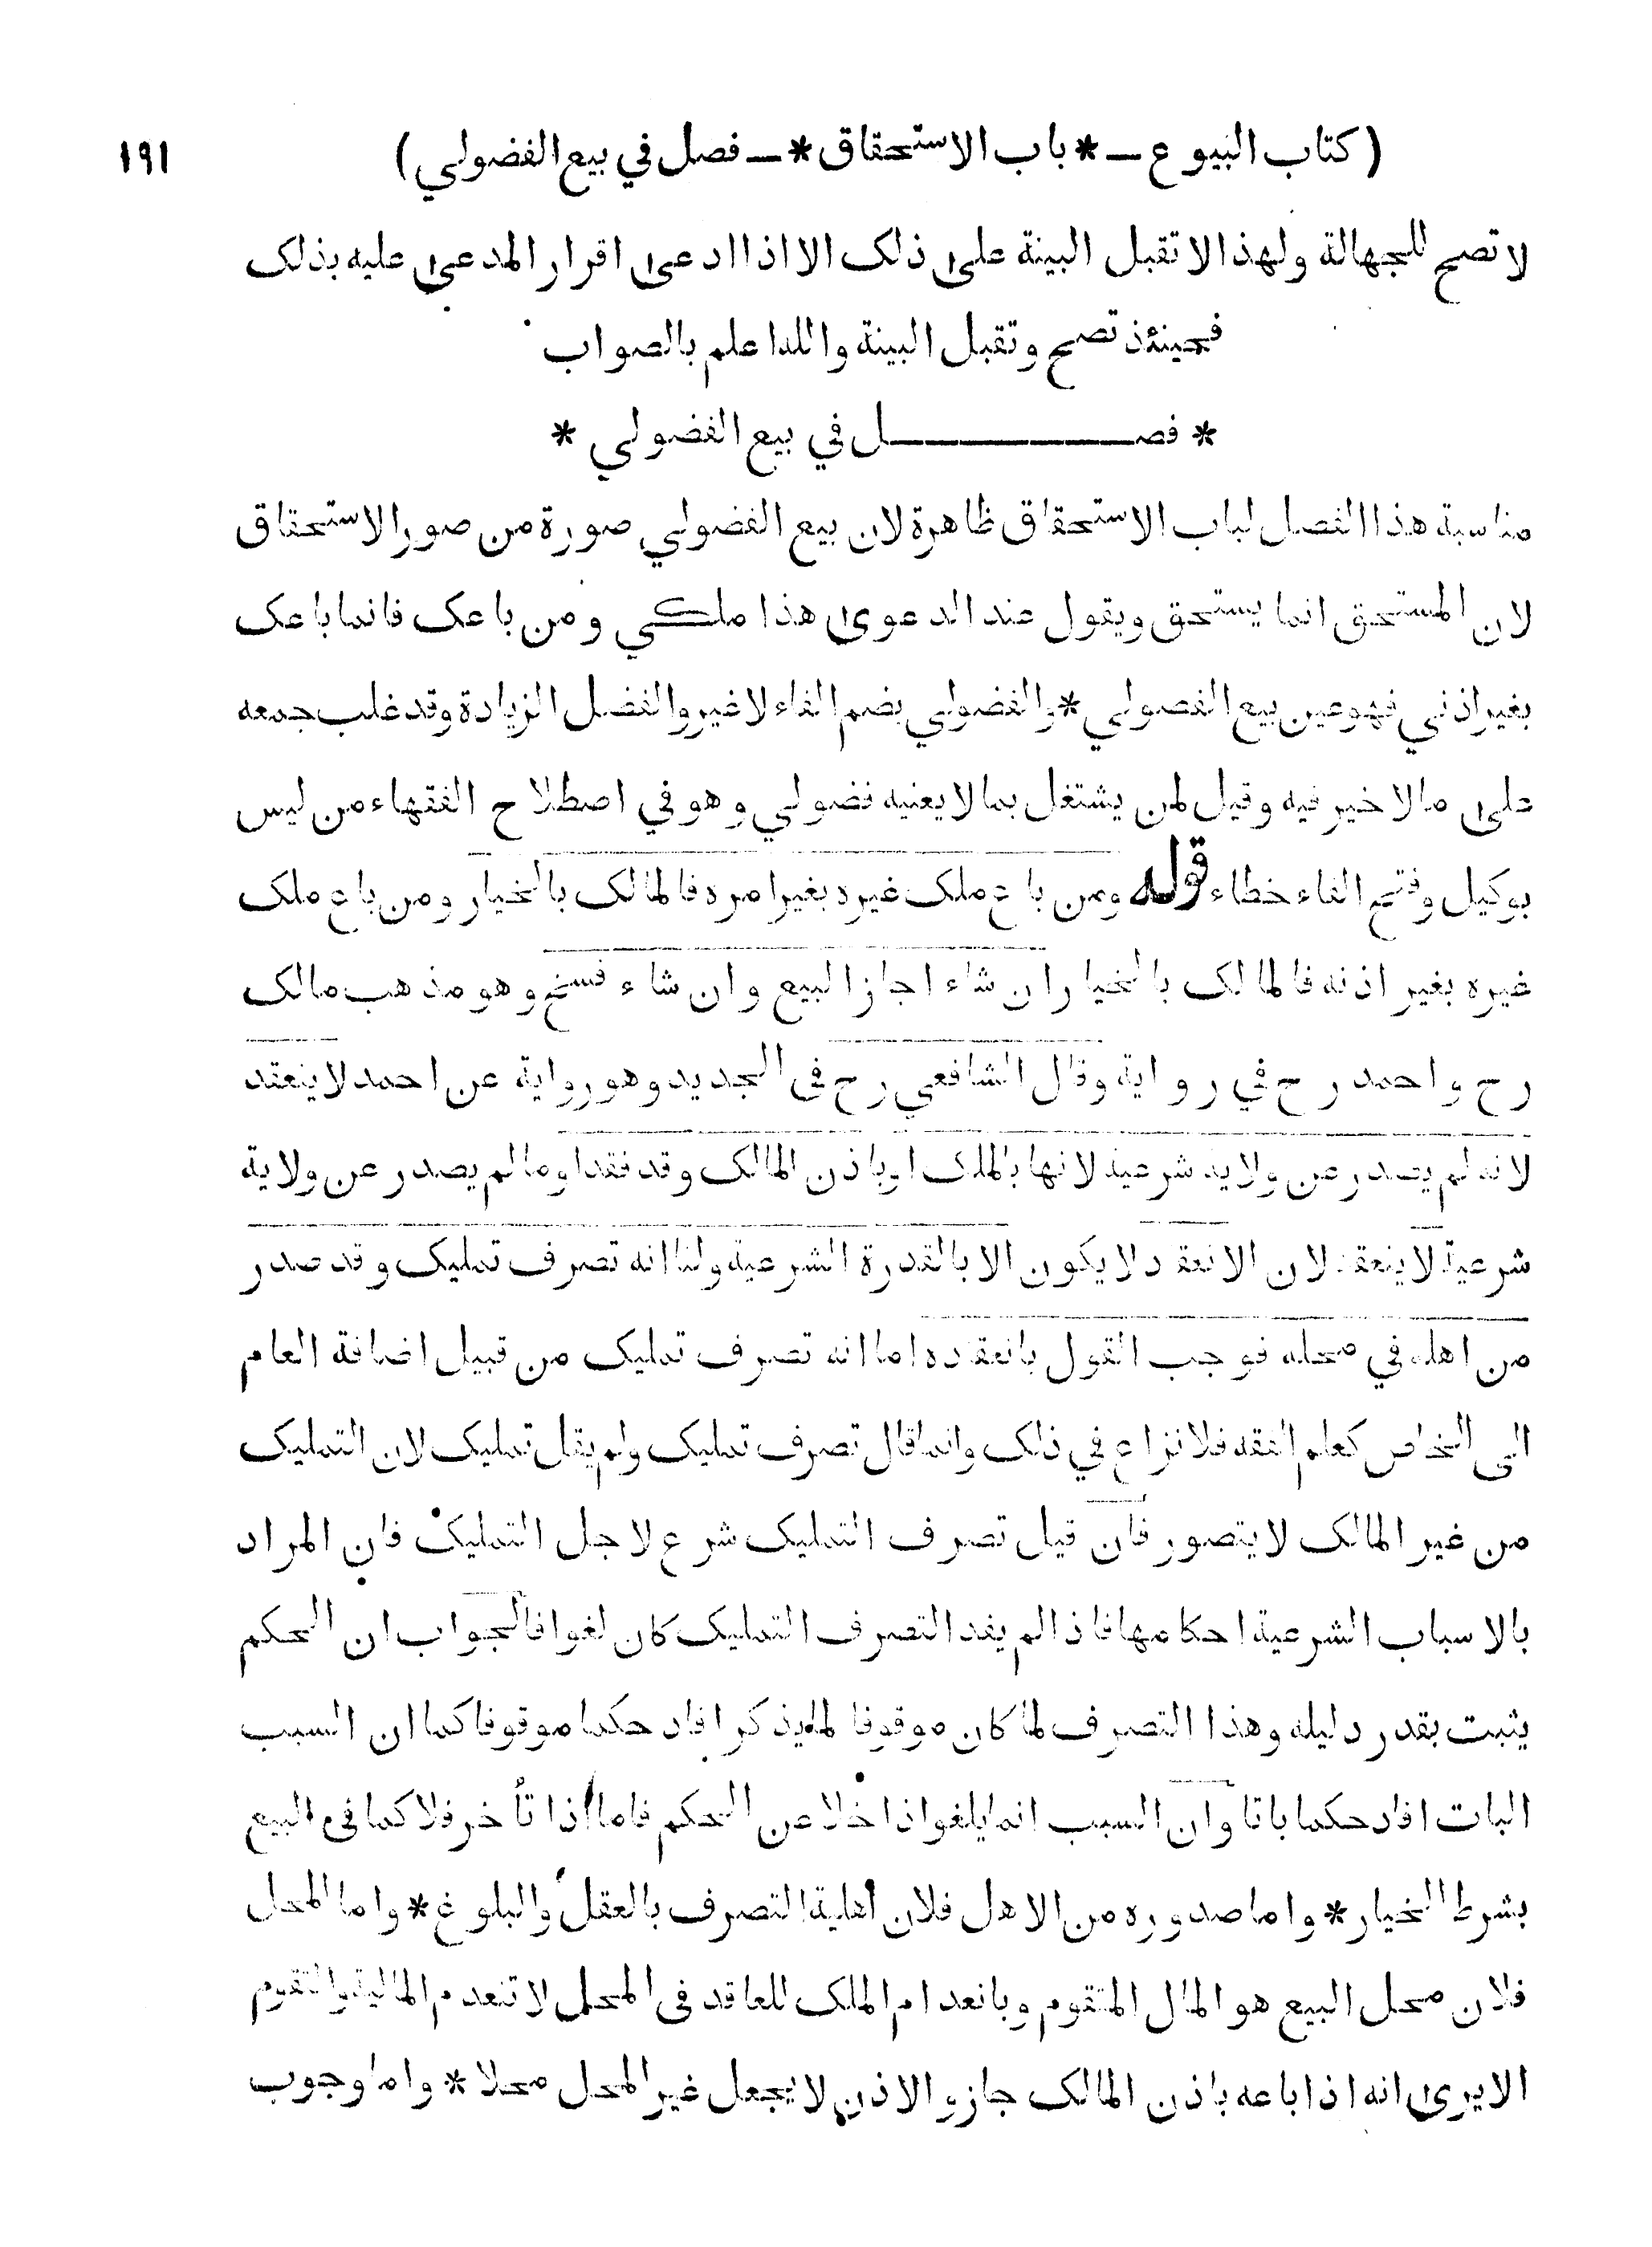 (كتاب البيوع — * باب الاستحقاق * — فصل في بيع الفضولي) ١٩١
لا تصح للجهالة ولهذا لا تقبل البينة على ذلك الا اذا ادعى اقرار المدعى عليه بذلك
فحينئذ تصح وتقبل البينة والله اعلم بالصواب
* فصل في بيع الفضولي *
مناسبة هذا الفصل لباب الاستحقاق ظاهرة لان بيع الفضولي صورة من صور الاستحقاق
لان المستحق انما يستحق ويقول عند الدعوى هذا ملكي ومن باعك فانما باعك
بغير اذني فهو عين بيع الفضولي * والفضولي بضم الفاء لا غير والفضل الزيادة وقد غلب جمعه
على ما لا خير فيه وقيل لمن يشتغل بما لا يعنيه فضولي وهو في اصطلاح الفقهاء من ليس
بوكيل وفتح الفاء خطاء قوله ومن باع ملك غيره بغير امره فالمالك بالخيار ومن باع ملك
غيره بغير اذنه فالمالك بالخيار ان شاء اجاز البيع وان شاء فسخ وهو مذهب مالك
رح واحمد رح في رواية وقال الشافعي رح فى الجديد وهو رواية عن احمد لا ينعقد
لانه لم يصدر عن ولاية شرعية لانها بالملك او باذن المالك وقد فقدا وما لم يصدر عن ولاية
شرعية لا ينعقد لان الانعقاد لا يكون الا بالقدرة الشرعية ولنا انه تصرف تمليك وقد صدر
من اهله في محله فوجب القول بانعقاده اما انه تصرف تمليك من قبيل اضافة العام
الى الخاص كعلم الفقه فلا نزاع في ذلك وانما قال تصرف تمليك ولم يقل تمليك لان التمليك
من غير المالك لا يتصور فان قيل تصرف التمليك شرع لاجل التمليك فان المراد
بالاسباب الشرعية احكامها فاذا لم يفد التصرف التمليك كان لغوا فالجواب ان الحكم
يثبت بقدر دليله وهذا التصرف لما كان موقوفا لما يذكر افاد حكما موقوفا كما ان السبب
البات افاد حكما باتا وان السبب انما يلغو اذا خلا عن الحكم فاما اذا تأخر فلا كما فى البيع
بشرط الخيار * واما صدوره من الاهل فلان أهلية التصرف بالعقل والبلوغ * واما المحل
فلان محل البيع هو المال المتقوم وبانعدام الملك للعاقد فى المحل لا تنعدم المالية والتقوم
الا يرى انه اذا باعه باذن المالك جاز والاذن لا يجعل غير المحل محلا * واما وجوب